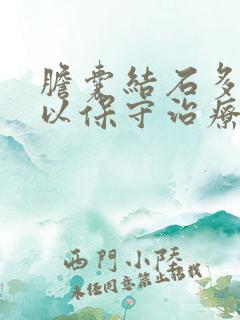 膽囊結石多
以保守治療
西門小陸
未經同意禁止轉載